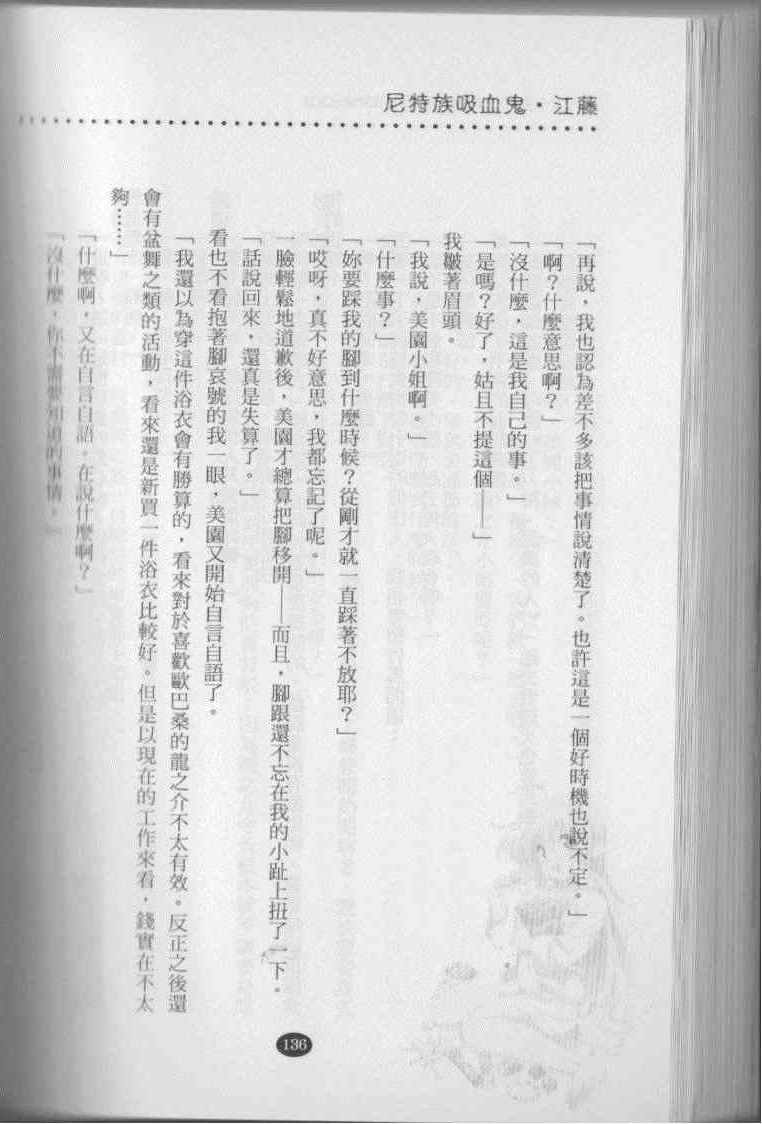 尼特族吸血鬼・江藤
「再說，我也認為差不多該把事情說清楚了。也許這是一個好時機也說不定。」
「啊？什麼意思啊？」
「沒什麼，這是我自己的事。」
「是嗎？好了，姑且不提這個——」
我皺著眉頭。
「我說，美園小姐啊。」
「什麼事？」
「妳要踩我的腳到什麼時候？從剛才就一直踩著不放耶？」
「哎呀，真不好意思，我都忘記了呢。」
一臉輕鬆地道歉後，美園才總算把腳移開——而且，腳跟還不忘在我的小趾上扭了一下。
「話說回來，還真是失算了。」
看也不看抱著腳哀號的我一眼，美園又開始自言自語了。
「我還以為穿這件浴衣會有勝算的，看來對於喜歡歐巴桑的龍之介不太有效。反正之後還
會有盆舞之類的活動，看來還是新買一件浴衣比較好。但是以現在的工作來看，錢實在不太
夠……」
「什麼啊，又在自言自語。在說什麼啊？」
「沒什麼，你不需要知道的事情。」
136